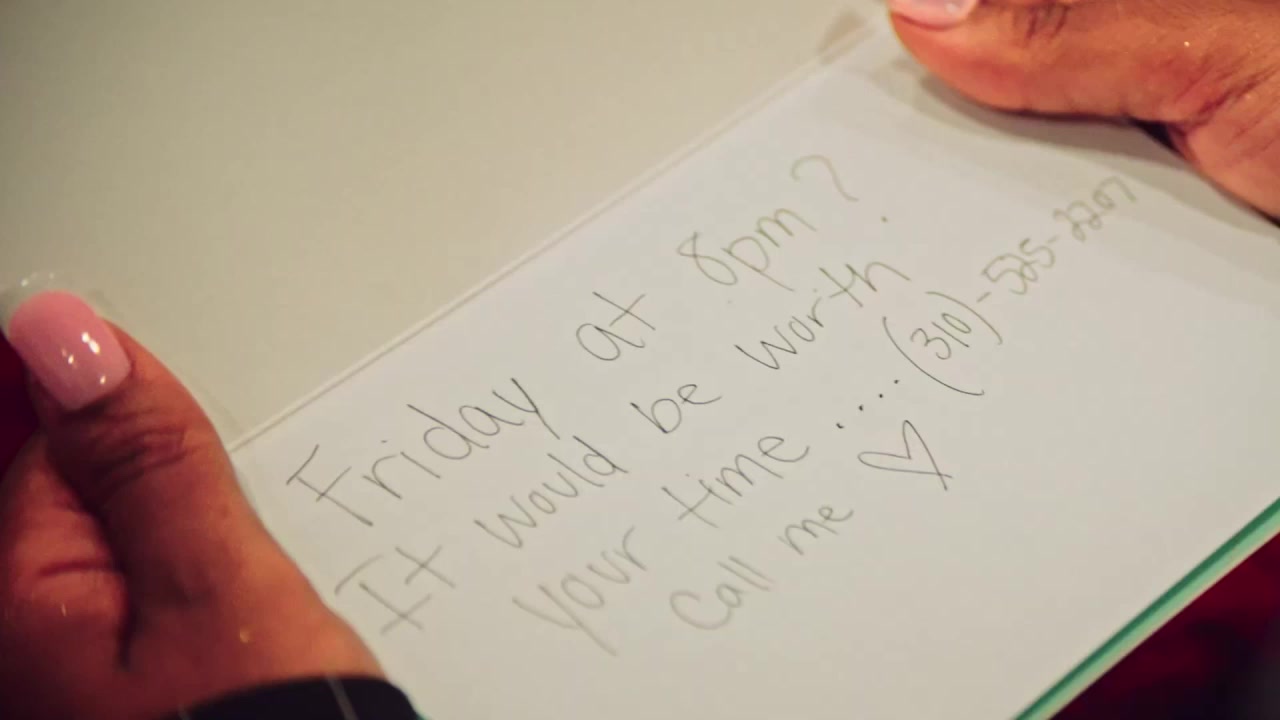 Friday at 8pm?
It would be worth
your time .... (310)-525-2207
Call me ♡